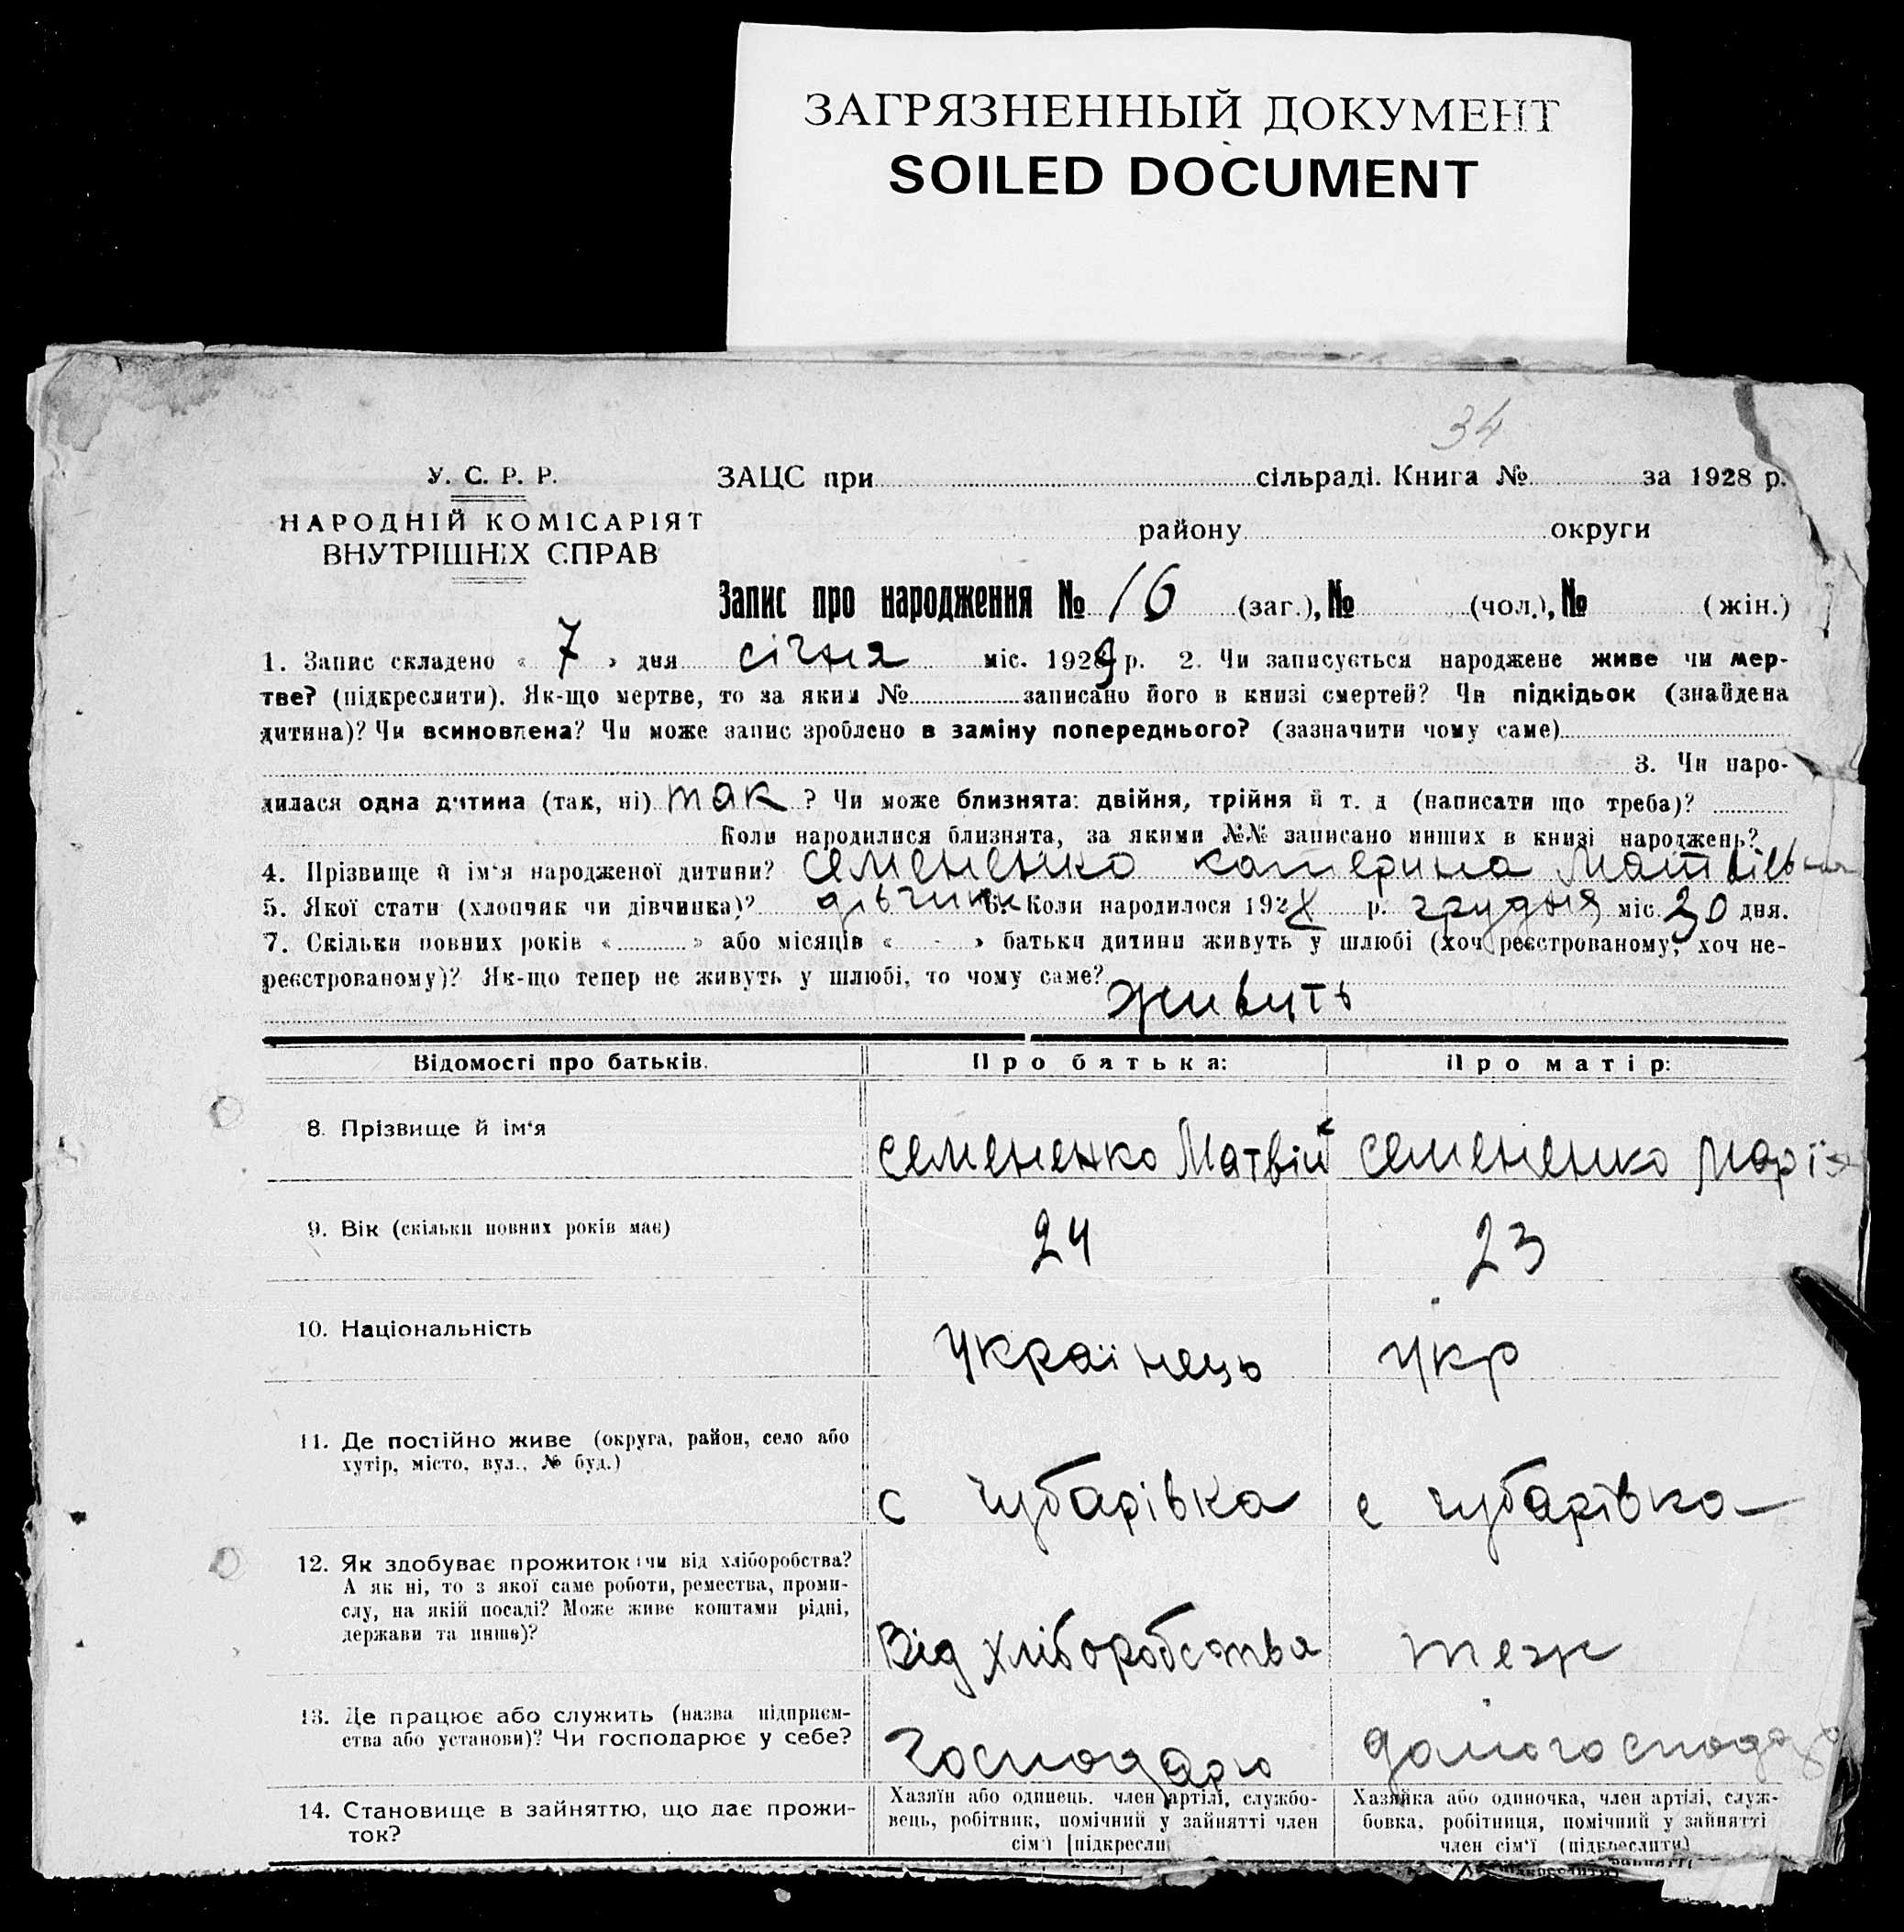 ЗАГРЯЗНЕННЫЙ ДОКУМЕНТ
SOILED DOCUMENT
34
У. С. Р. Р.
НАРОДНІЙ КОМІСАРІЯТ
ВНУТРІШНІХ СПРАВ
ЗАЦС при сільраді. Книга № за 1928 р.
району округи
Запис про народження № 16 (заг.), № (чол.), № (жін.)
1. Запис складено « 7 » дня січня міс. 1929 р. 2. Чи записується народжене живе чи мер-
тве? (підкреслити). Як-що мертве, то за яким № записано його в книзі смертей? Чи підкідьок (знайдена
дитина)? Чи всиновлена? Чи може запис зроблено в заміну попереднього? (зазначити чому саме)
3. Чи наро-
дилася одна дитина (так, ні) так ? Чи може близнята: двійня, трійня й т. д (написати що треба)?
Коли народилися близнята, за якими №№ записано инших в книзі народжень?
4. Прізвище й ім'я народженої дитини? Семененко Катерина Матвіівна
5. Якої стати (хлопчик чи дівчинка)? дівчинк 6. Коли народилося 192 р. грудня міс. 30 дня.
7. Скільки повних років « » або місяців « - » батьки дитини живуть у шлюбі (хоч реєстрованому, хоч не-
реєстрованому)? Як-що тепер не живуть у шлюбі, то чому саме?
живуть
Відомості про батьків. Про батька: Про матір:
8. Прізвище й ім'я Семененко Матвій Семененко Марія
9. Вік (скільки повних років має) 24 23
10. Національність Українець укр
11. Де постійно живе (округа, район, село або
хутір, місто, вул., № буд.)
с Чубарівка с Чубарівка
12. Як здобуває прожиток (чи від хліборобства?
А як ні, то з якої саме роботи, ремества, проми-
слу, на якій посаді? Може живе коштами рідні,
держави та инше)?
Від хліборобства теж
13. Де працює або служить (назва підприєм-
ства або установи)? Чи господарює у себе?
Господарю домогоспода
14. Становище в зайняттю, що дає прожи-
ток?
Хазяїн або одинець, член артілі, службо-
вець, робітник, помічний у зайнятті член
сім'ї [підкресли
Хазяйка або одиночка, член артілі, служ-
бовка, робітниця, помічний у зайнятті
член сім'ї (підкреслити)